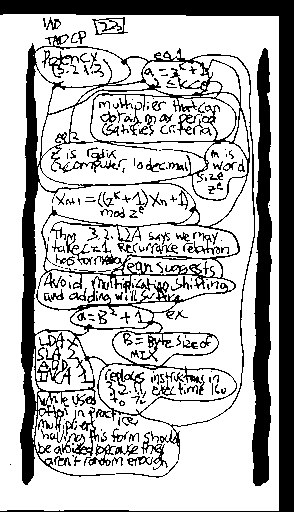 TAOCP
Potency
3.2.1.3
eq 1
a = z^k + 1
2 ≤ k < e
multiplier that can
obtain max period
satisfies criteria
eq 2
z is radix
2 computer, 10 decimal
m is
word
size
z^e
X_{n+1} = ((z^k + 1) X_n + 1)
mod z^e
Thm 3.2.1.2A says we may
take c=1. Recurrence relation
has form
eqn suggests
Avoid multiplication shifting
and adding will suffice
ex
a = B^2 + 1
B = Byte size of
MIX
LDA X
SLA 2
ADD X
INCA 1
replaces instructions in
exec time
to
while used
often in practice,
multipliers
having this form should
be avoided because they
aren't random enough